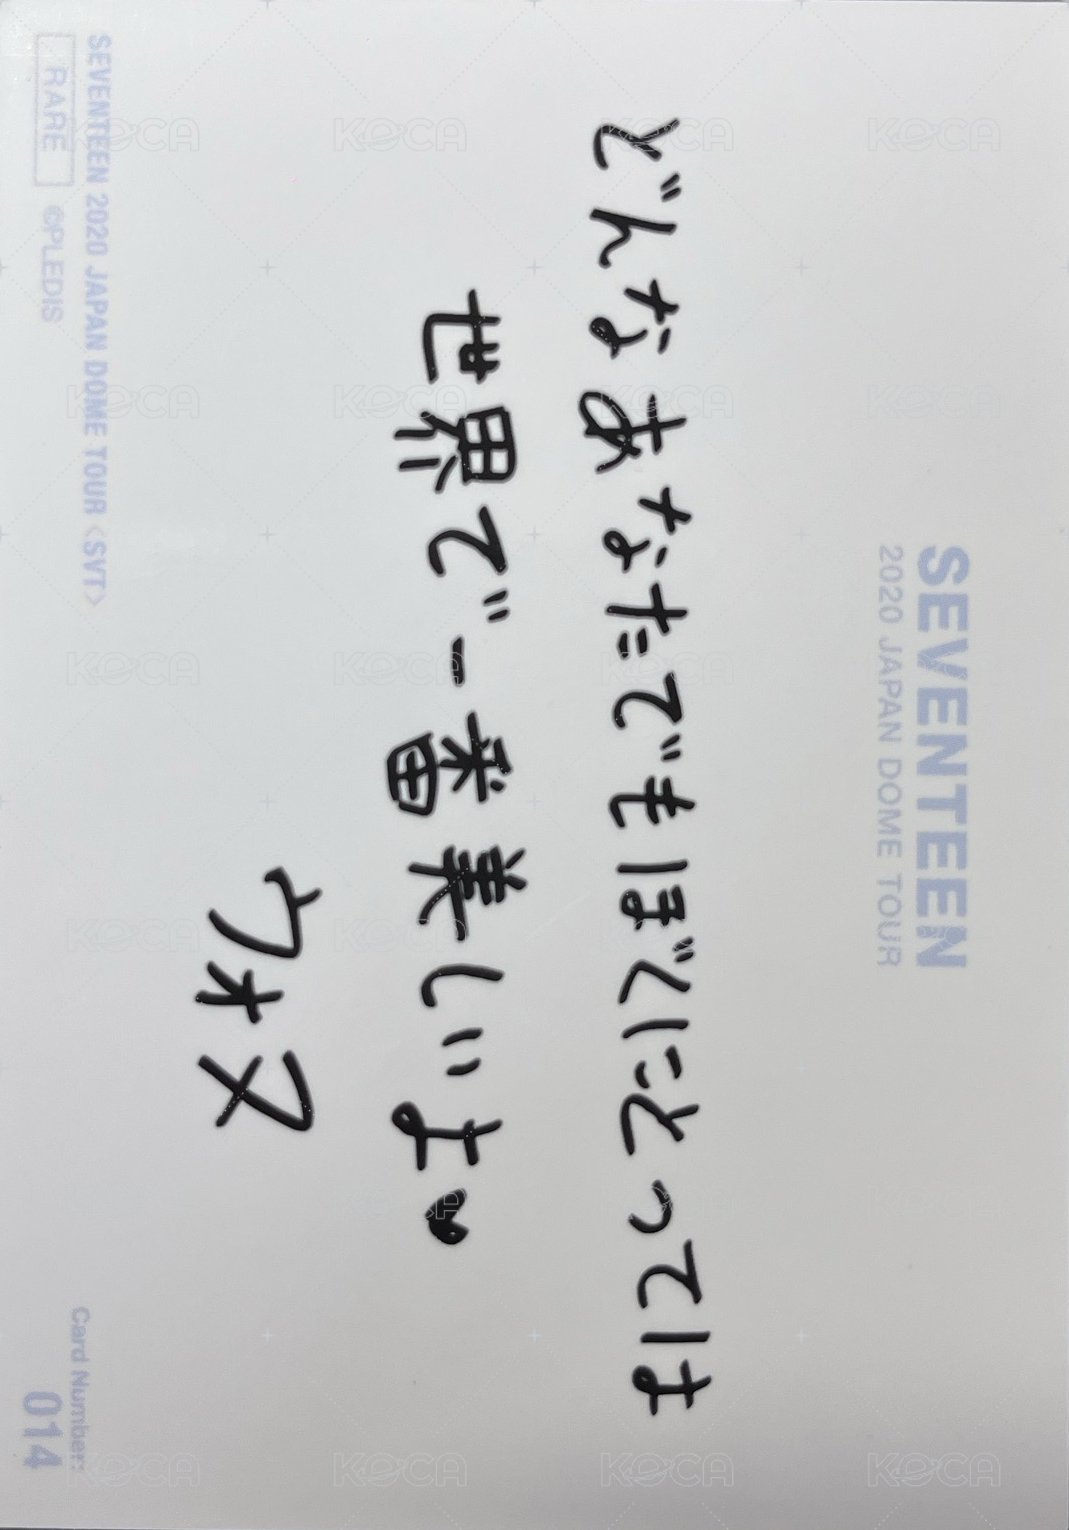 SEVENTEEN
2020 JAPAN DOME TOUR
どんなあなたでもぼくにとっては
世界で一番美しいよ♥
ウォヌ
SEVENTEEN 2020 JAPAN DOME TOUR <SVT>
RARE ©PLEDIS
Card Number:
014
KOCA